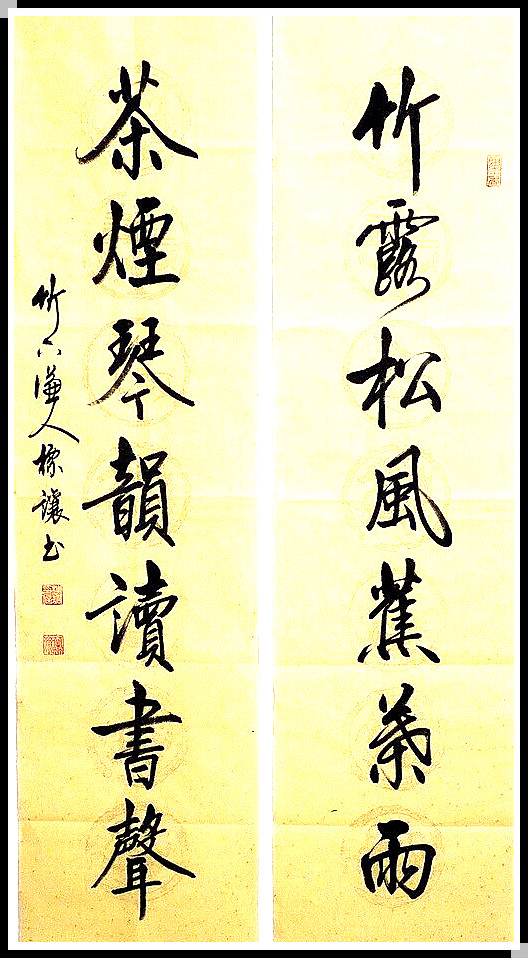 竹露松風蕉葉雨
茶煙琴韻讀書聲
竹下謙人檺讓书